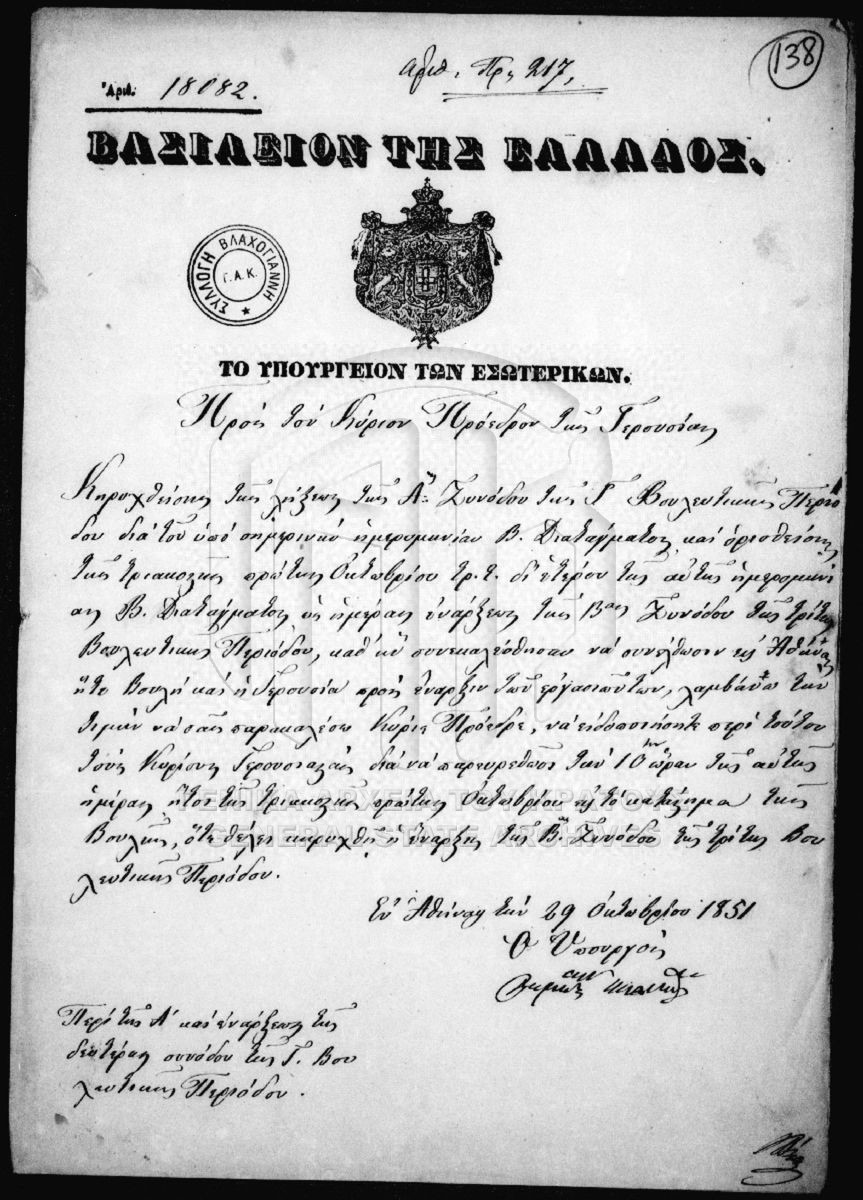 Ἀριθ. 18082.
Αριθ. Πρ. 217,
138
ΒΑΣΙΛΕΙΟΝ ΤΗΣ ΕΛΛΑΔΟΣ.
ΣΥΛΛΟΓΗ ΒΛΑΧΟΓΙΑΝΝΗ
Γ.Α.Κ.
ΤΟ ΥΠΟΥΡΓΕΙΟΝ ΤΩΝ ΕΣΩΤΕΡΙΚΩΝ.
Πρός τόν Κύριον Πρόεδρον τῆς Γερουσίας
Κηρυχθείσης τῆς λήξεως τῆς Αης Συνόδου τῆς Γ Βουλευτικῆς Περιό
δου διά τοῦ ὑπό σημερινήν ἡμερομηνίαν Β. Διατάγματος, καί ὁρισθείσης
τῆς τριακοστῆς πρώτης Ὀκτωβρίου τρ. ἔ. δι' ἑτέρου τῆς αὐτῆς ἡμερομηνί
ας Β. Διατάγματος ὡς ἡμέρας ἐνάρξεως τῆς Βας Συνόδου τῆς τρίτης
Βουλευτικῆς Περιόδου, καθ' ἥν συνεκαλέσθησαν νά συνέλθωσιν εἰς Ἀθήνας
ἥτε Βουλή καί ἡ Γερουσία πρός ἔναρξιν τῶν ἐργασιῶν των, λαμβάνω τήν
τιμήν νά σᾶς παρακαλέσω Κύριε Πρόεδρε, νά εἰδοποιήσητε περί τούτου
τούς Κυρίους Γερουσιαστάς διά νά παρευρεθῶσι τήν 10ην ὥραν τῆς αὐτῆς
ἡμέρας ἤτοι τῆς τριακοστῆς πρώτης Ὀκτωβρίου εἰς τό κατάστημα τῆς
Βουλῆς, ὅτε θέλει κηρυχθῆ ἡ ἔναρξις τῆς Βας Συνόδου τῆς τρίτης Βου
λευτικῆς Περιόδου.
Ἐν Ἀθήναις τήν 29 Ὀκτωβρίου 1851
Ὁ Ὑπουργός
Περί τῆς Λ' καί ἐνάρξεως τῆς
δευτέρας συνόδου τῆς Γ. Βου
λευτικῆς Περιόδου.
ΓΕΝΙΚΑ ΑΡΧΕΙΑ ΤΟΥ ΚΡΑΤΟΥΣ
GENERAL STATE ARCHIVES